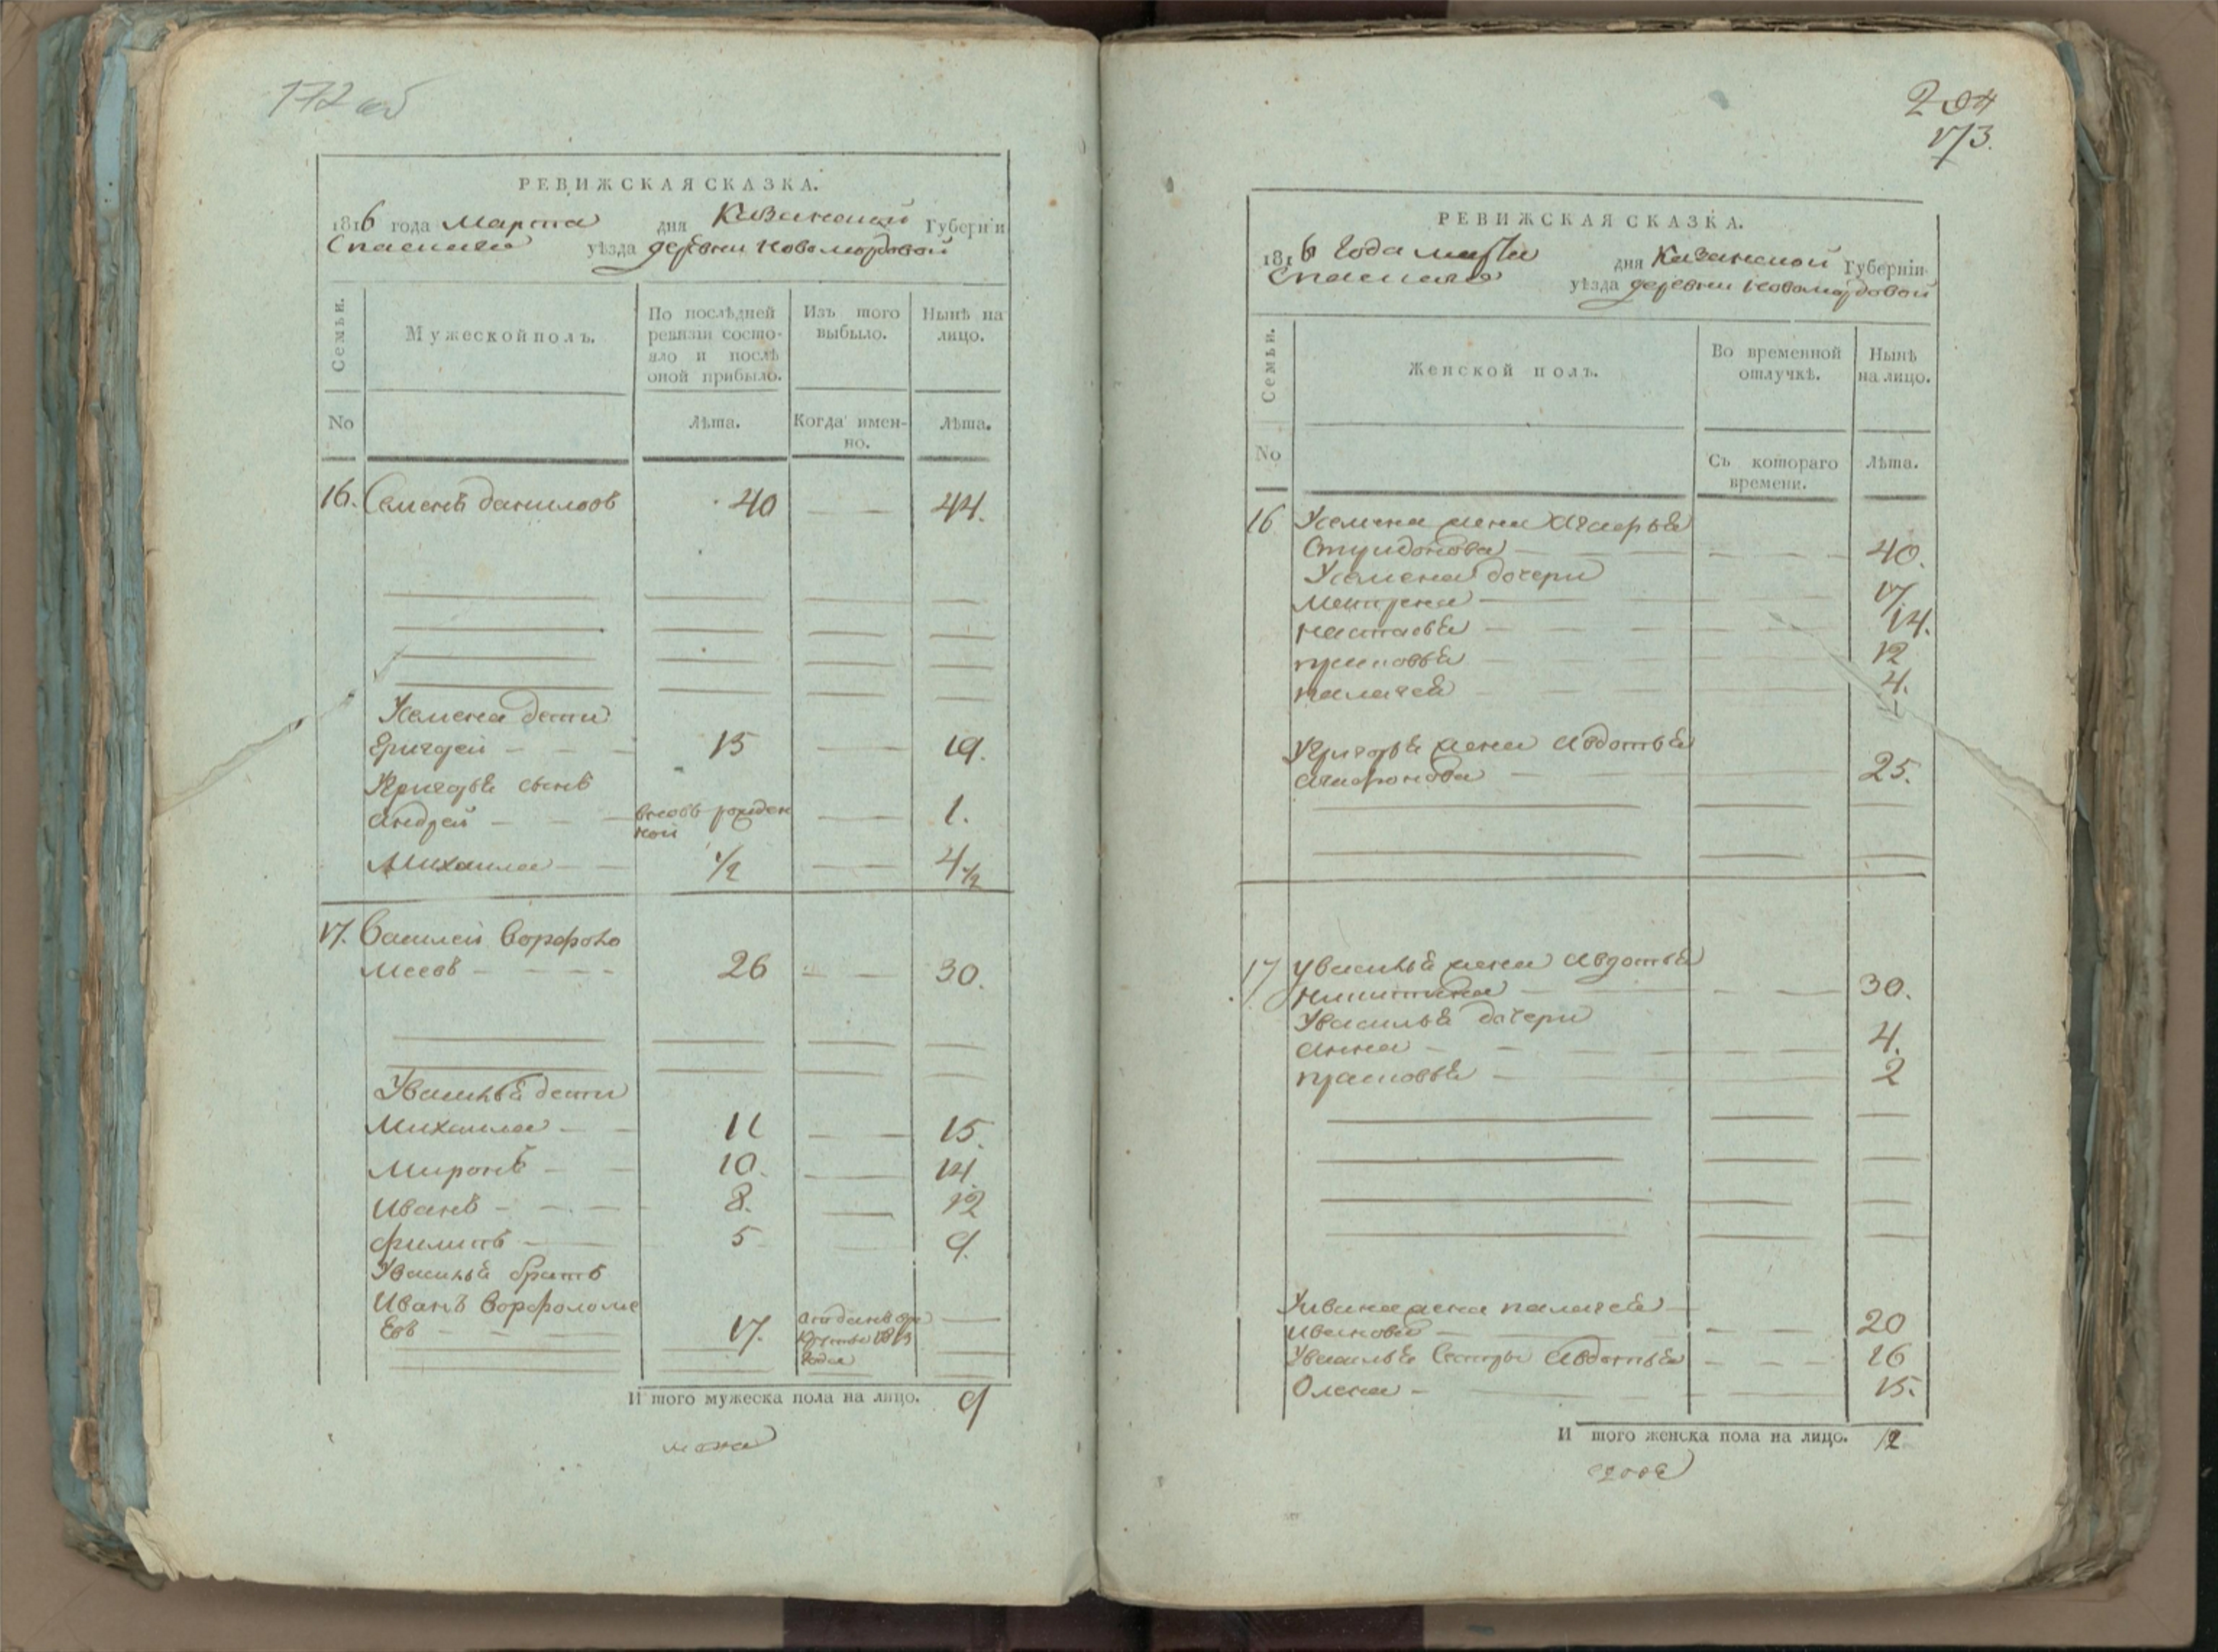 172 об
РЕВИЖСКАЯ СКАЗКА.
1816 года Марта дня Казанской Губернїи
Спаскаго уѣзда деревни Новомордовой
Семьи.
Мужеской полъ.
По послѣдней ревизїи состояло и послѣ оной прибыло.
Изъ того выбыло.
Нынѣ на лицо.
No
Лѣта.
Когда имен-но.
Лѣта.
16. Семенъ даниловъ 40 44.
Усемена дети
Григорей 15 19.
Угригорья сынъ
андрей вновь рожден ной 1.
Михаила 1/2 4 1/2
17. Василей Ворфоло
меевъ 26 30.
Увасилья дети
Михаила 11 15.
Миронъ 10. 14.
Иванъ 8. 12
филипъ 5 9.
Увасилья братъ
Иванъ Ворфоломе
евъ 17. отданъ в рекруты 1813 года
Итого мужеска пола на лицо. 9
204
173.
РЕВИЖСКАЯ СКАЗКА.
1816 года марта дня Казанской Губернїи
Спаскаго уѣзда деревни Новомордовой
Семьи.
Женской полъ.
Во временной отлучкѣ.
Нынѣ на лицо.
No
Съ котораго времени.
Лѣта.
16 Усемена жена
Спиридонова 40.
Усемена дочери
Матрена 17
настасья 14.
прасковья 12
палагея 4.
Угригорья жена авдотья
агафонова 25.
17 Увасилья жена авдотья
Никитина 30.
Увасилья дочери
анна 4.
прасковья 2
Уивана жена палагея
Иванова 20
Увасилья сестры авдотья 16
Олена 15.
Итого женска пола на лицо. 12